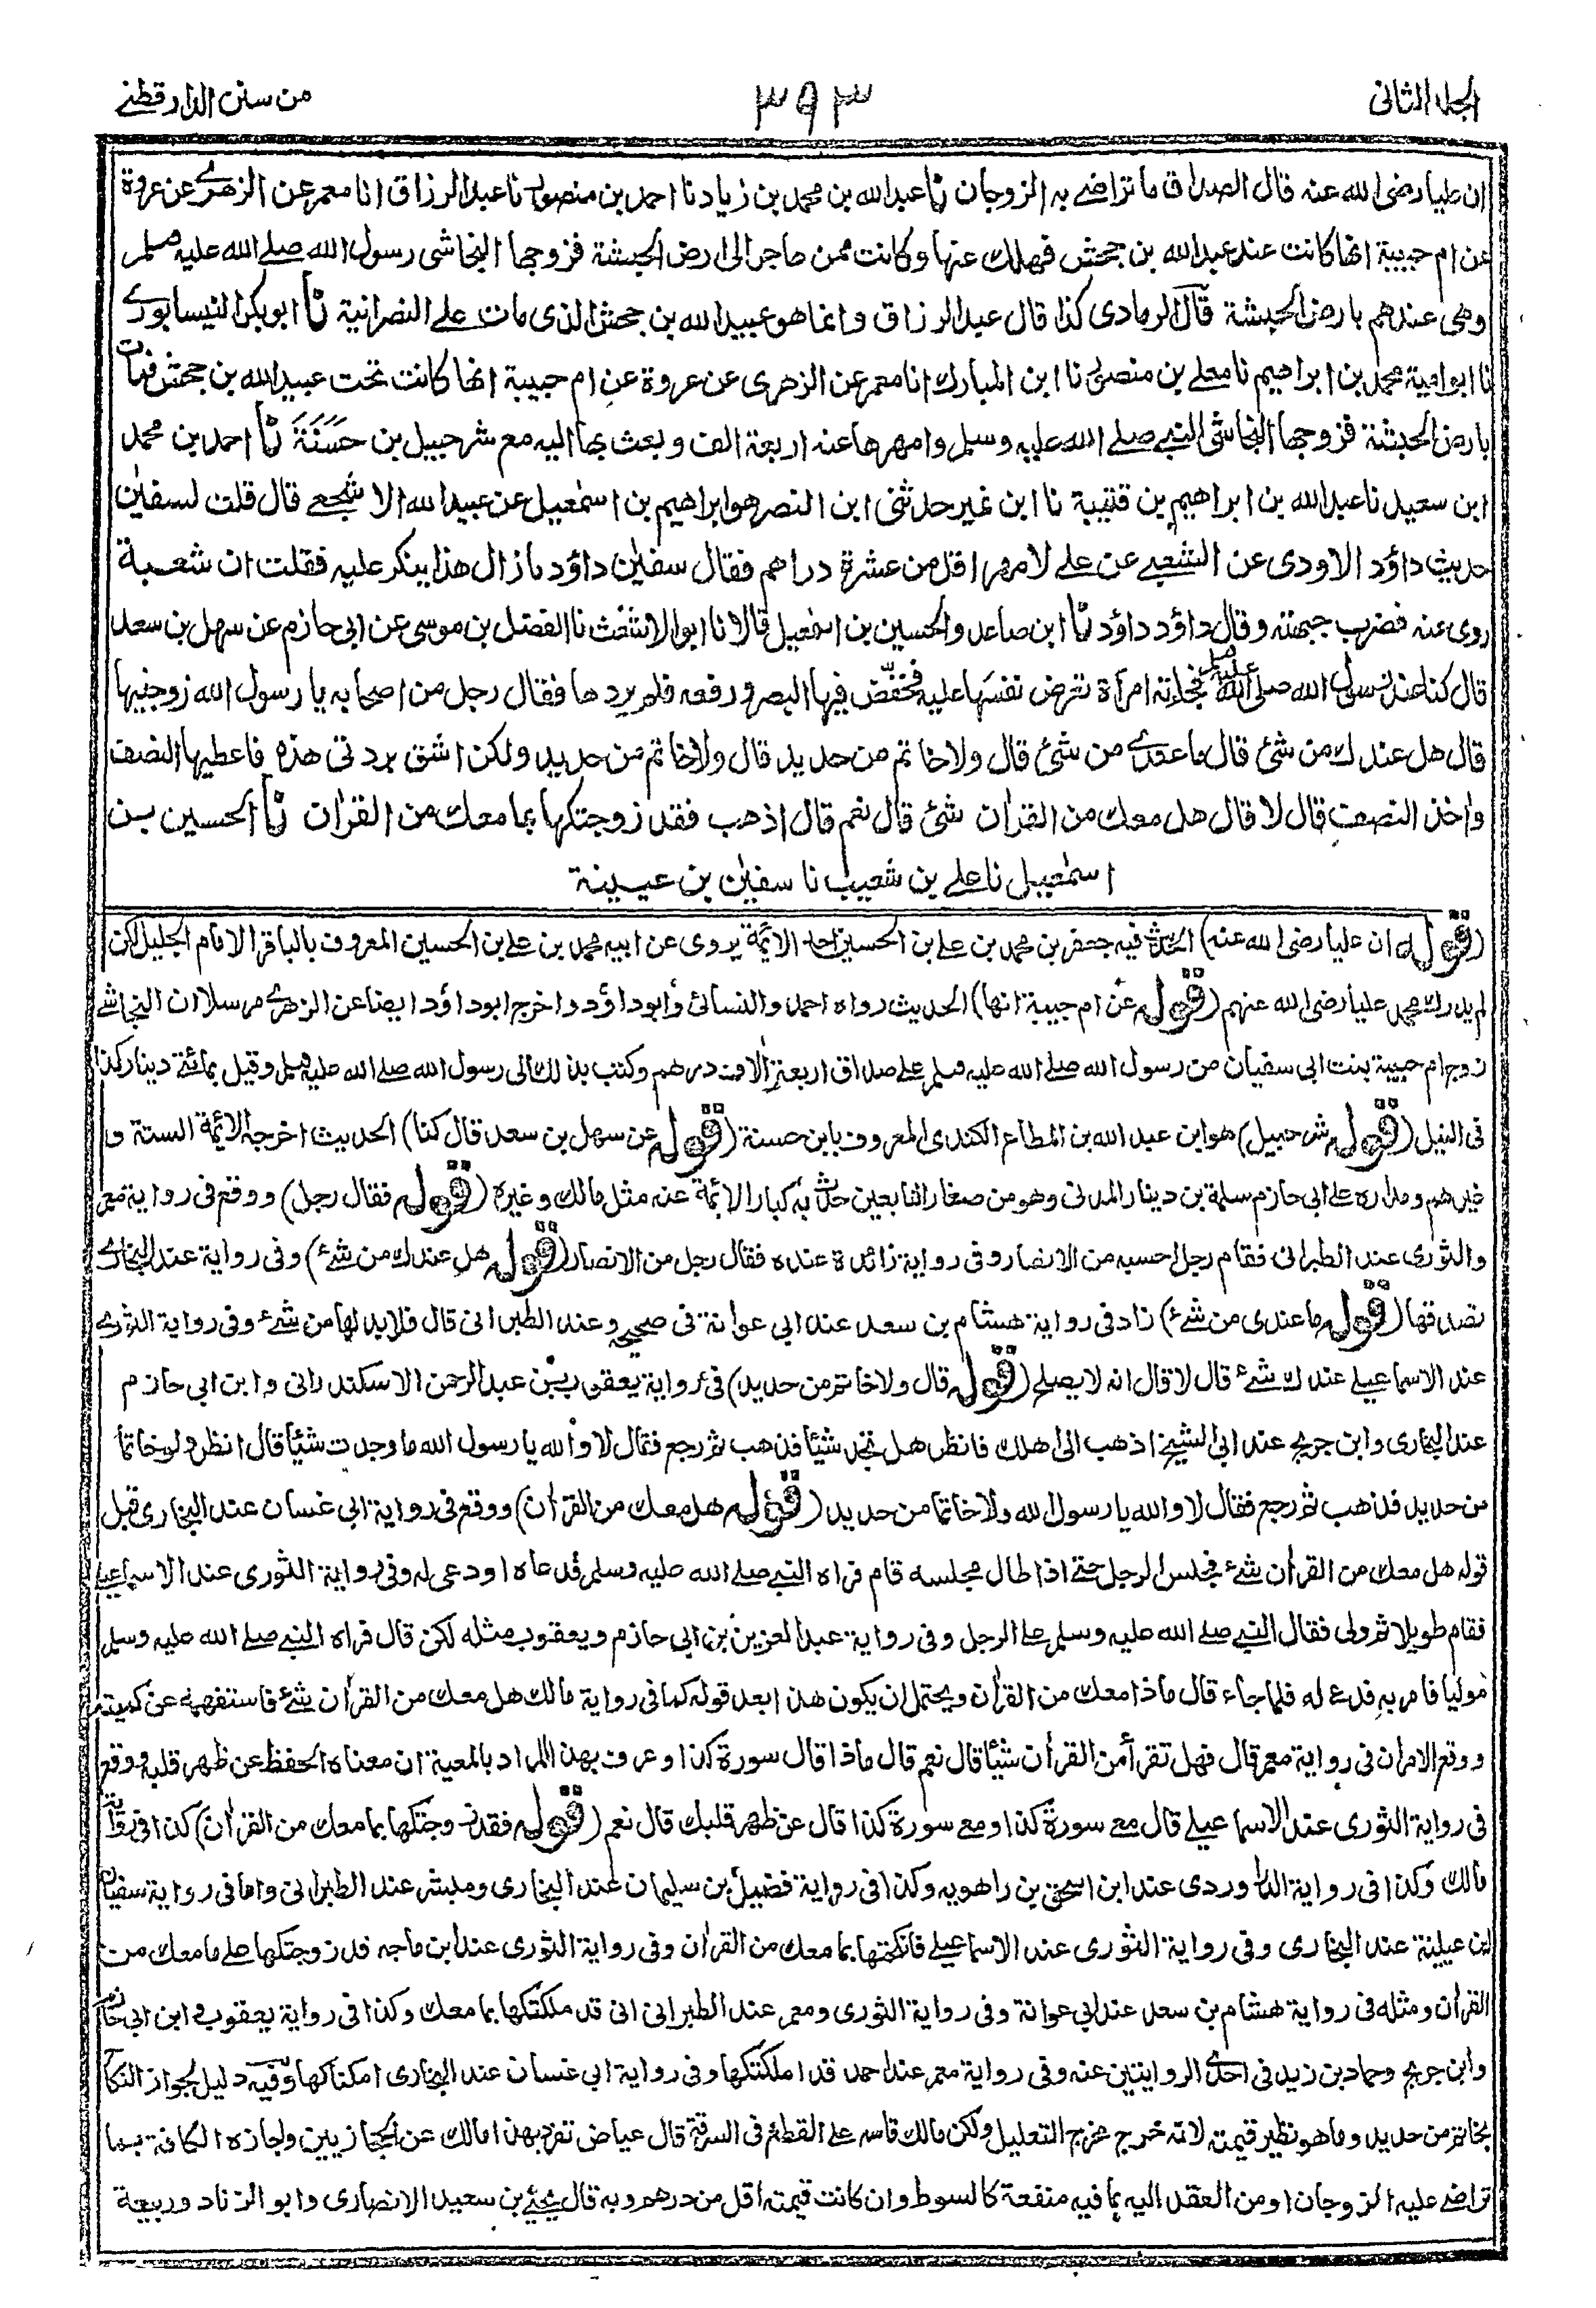 الجلد الثانى
٣٩٣
من سنن الدارقطنے
ان عليا رضى الله عنه قال الصداق ما تراضے به الزوجان نا عبد الله بن محمد بن زياد نا احمد بن منصور نا عبد الرزاق انا معمر عن الزهرے عن عروة
عن ام حبيبة انها كانت عند عبد الله بن جحش فهلك عنها وكانت ممن هاجر الى ارض الحبشة فزوجها النجاشى رسول الله صلے الله عليه وسلم
وهى عندهم بارض الحبشة قال الرمادى كذا قال عبد الرزاق وانما هو عبيد الله بن جحش الذى مات على النصرانية نا ابو بكر النيسابورے
نا ابو امية محمد بن ابراهيم نا معلے بن منصور نا ابن المبارك انا معمر عن الزهرى عن عروة عن ام حبيبة انها كانت تحت عبيد الله بن جحش فمات
بارض الحبشة فزوجها النجاشى النبے صلے الله عليه وسلم وامهرها عنه اربعة الف وبعث بها اليه مع شرحبيل بن حَسَنَةَ نا احمد بن محمد
ابن سعيد نا عبد الله بن ابراهيم بن قتيبة نا ابن نمير حدثنى ابن النصر هو ابراهيم بن اسمٰعيل عن عبيد الله الاشجعے قال قلت لسفيٰن
حديث داؤد الاودى عن الشعبے عن علے لا مهر اقل من عشرة دراهم فقال سفيٰن داؤد مازال هذا ينكر عليه فقلت ان شعبة
روى عنه فضرب جبهته وقال داؤد داؤد نا ابن صاعد والحسين بن اسمٰعيل قالا نا ابو الاشعث نا الفضل بن موسى عن ابى حازم عن سهل بن سعد
قال كنا عند رسول الله صلى الله عليه وسلم فجاءته امرأة تعرض نفسها عليه فخفض فيها البصر ورفعه فلم يردها فقال رجل من اصحابه يا رسول الله زوجنيها
قال هل عندك من شئ قال ما عندے من شئ قال ولا خاتم من حديد قال ولا خاتم من حديد ولكن اشق بردتى هذه فاعطيها النصف
واخذ النصف قال لا قال هل معك من القرآن شئ قال نعم قال اذهب فقد زوجتكها بما معك من القرآن نا الحسين بن
اسمٰعيل نا علے بن شعيب نا سفيٰن بن عيينة
(قوله ان عليا رضى الله عنه) الحديث فيه جعفر بن محمد بن على بن الحسين احد الائمة يروى عن ابيه محمد بن على بن الحسين المعروف بالباقر الامام الجليل لكن
لم يدرك محمد عليا رضى الله عنهم (قوله عن ام حبيبة انها) الحديث رواه احمد والنسائى وابو داؤد واخرج ابو داؤد ايضا عن الزهرے مرسلا ان النجاشے
زوج ام حبيبة بنت ابى سفيان من رسول الله صلے الله عليه وسلم على صداق اربعة الاف درهم وكتب بذلك الى رسول الله صلے الله عليه وسلم وقيل بمائتے دينار كذا
فى النيل (قوله شرحبيل) هو ابن عبد الله بن المطاع الكندى المعروف بابن حسنة (قوله عن سهل بن سعد قال كنا) الحديث اخرجه الائمة الستة و
غيرهم ومداره على ابى حازم سلمة بن دينار المدنى وهو من صغار التابعين حدث به كبار الائمة عنه مثل مالك وغيره (قوله فقال رجل) ووقع فى رواية معمر
والثورى عند الطبرانى فقام رجل احسبه من الانصار وفى رواية زائدة عنده فقال رجل من الانصار (قوله هل عندك من شئ) وفى رواية عند البخارے
تصدقها (قوله ما عندى من شئ) زاد فى رواية هشام بن سعد عند ابى عوانة فى صحيحه وعند الطبرانى قال فلا بد لها من شئ وفى رواية الثورے
عند الاسماعيلے عندك شئ قال لا قال انه لا يصلح (قوله قال ولا خاتم من حديد) فى رواية يعقوب بن عبد الرحمن الاسكندرانى وابن ابى حازم
عند البخارى وابن جريج عند ابى الشيخ اذهب الى اهلك فانظر هل تجد شيئا فذهب ثم رجع فقال لا والله يا رسول الله ما وجدت شيئا قال انظر ولو خاتما
من حديد فذهب ثم رجع فقال لا والله يا رسول الله ولا خاتما من حديد (قوله هل معك من القرآن) ووقع فى رواية ابى غسان عند البخارى قبل
قوله هل معك من القرآن شئ فجلس الرجل حتے اذا طال مجلسه قام فراه النبے صلے الله عليه وسلم فدعاه او دعى له وفى رواية الثورى عند الاسماعيلے
فقام طويلا ثم ولى فقال النبے صلے الله عليه وسلم علے الرجل وفى رواية عبد العزيز بن ابى حازم ويعقوب مثله لكن قال فراه النبے صلے الله عليه وسلم
موليا فامر به فدعى له فلما جاء قال ماذا معك من القرآن ويحتمل ان يكون هذا بعد قوله كما فى رواية مالك هل معك من القرآن شئ فاستفهمه عن كميته
ووقع الامران فى رواية معمر قال فهل تقرأ من القرآن شيئا قال نعم قال ماذا قال سورة كذا وعرف بهذا المراد بالمعية ان معناه الحفظ عن ظهر قلبه ووقع
فى رواية الثورى عند الاسماعيلے قال معے سورة كذا ومعے سورة كذا قال عن ظهر قلبك قال نعم (قوله فقد زوجتكها بما معك من القرآن) كذا فى رواية
مالك وكذا فى رواية الدراوردى عند ابن اسحٰق بن راهويه وكذا فى رواية فضيل بن سليمان عند البخارى ومبشر عند الطبرانى واما فى رواية سفيان
ابن عيينة عند البخارى وفى رواية الثورى عند الاسماعيلے فانكحتها بما معك من القرآن وفى رواية الثورى عند ابن ماجه قد زوجتكها على ما معك من
القرآن ومثله فى رواية هشام بن سعد عند ابى عوانة وفى رواية الثورى ومعمر عند الطبرانى انى قد ملكتكها بما معك وكذا فى رواية يعقوب وابن ابى حازم
وابن جريج وحماد بن زيد فى احدے الروايتين عنه وفى رواية معمر عند احمد قد املكتكها وفى رواية ابى غسان عند البخارى امكناكها وفيه دليل لجواز النكاح
بخاتم من حديد وما هو نظير قيمته لانه خرج مخرج التعليل ولكن مالك قاسه على القطع فى السرقة قال عياض تفرد بهذا مالك عن الحجازيين واجازه الكافة بما
تراضے عليه الزوجان او من العقد اليه بما فيه منفعة كالسوط وان كانت قيمته اقل من درهم وبه قال يحيے بن سعيد الانصارى وابو الزناد وربيعة